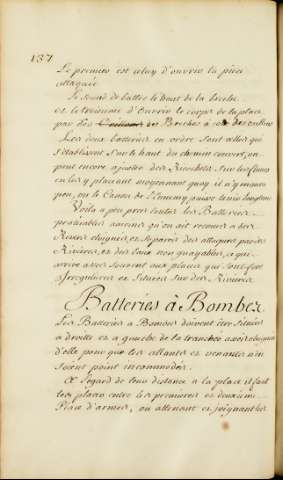 137
Le premier est celuy d'ouvrir la piece
attaquée
Le second de battre le haut de la breche
et le troisieme d'ouvrir le corps de la place
par des breches à
Les deux batteries en ordre sont celles qui
s'etablissent sur le haut du chemin couvert, on
peut encore ajouter des Ricochets sur les flancs
en les y placant moyennant quoy il n'y manque
pas, ou le Canon de l'Ennemy puisse
Voila a peu pres toutes les Batteries
praticables amoins qu'on ait recours a des
Rivieres eloignées et separées des attaques par des
Rivieres, et des Eaux non guayables, a qui
arrive assés souvent aux places qui sont fort
Irregulieres et situées sur des Rivieres
Batteries à Bombes
Les Batteries a Bombes doivent être situées
a droitte et a gauche de la tranchée
d'elle pour que les allants et venants n'en
soient point incommodés.
A l'Egard de leur distance a la place il faut
les placer entre les premieres et deuxieme
Place d'armes, ou attenant et joignant les